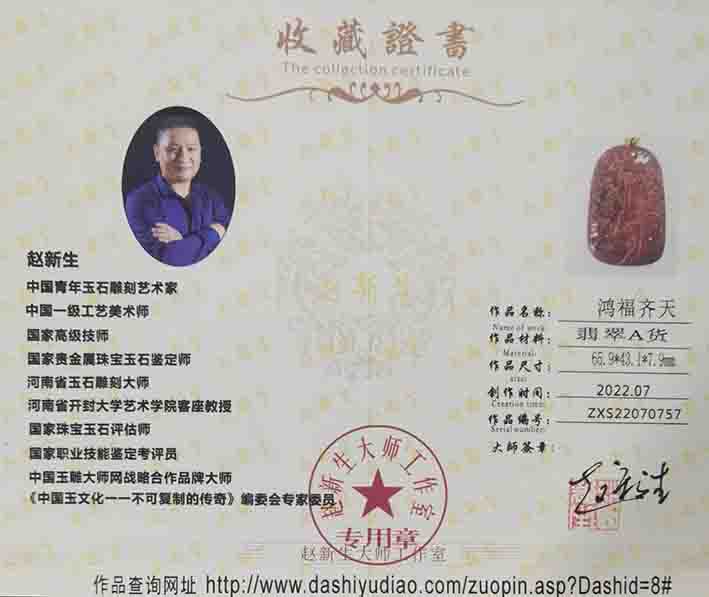 收藏證書
The collection certificate
赵新生
中国青年玉石雕刻艺术家
中国一级工艺美术师
国家高级技师
国家贵金属珠宝玉石鉴定师
河南省玉石雕刻大师
河南省开封大学艺术学院客座教授
国家珠宝玉石评估师
国家职业技能鉴定考评员
中国玉雕大师网战略合作品牌大师
《中国玉文化一一不可复制的传奇》编委会专家委员
作品名称: 鸿福齐天
Name of work:
作品材料: 翡翠A货
Material:
作品尺寸: 65.9*43.1*7.9mm
size:
创作时间: 2022.07
Creation time:
作品编号: ZXS22070757
Serial number:
大师签章:
赵新生
赵新生大师工作室
专用章
赵新生大师工作室
作品查询网址 http://www.dashiyudiao.com/zuopin.asp?Dashid=8#